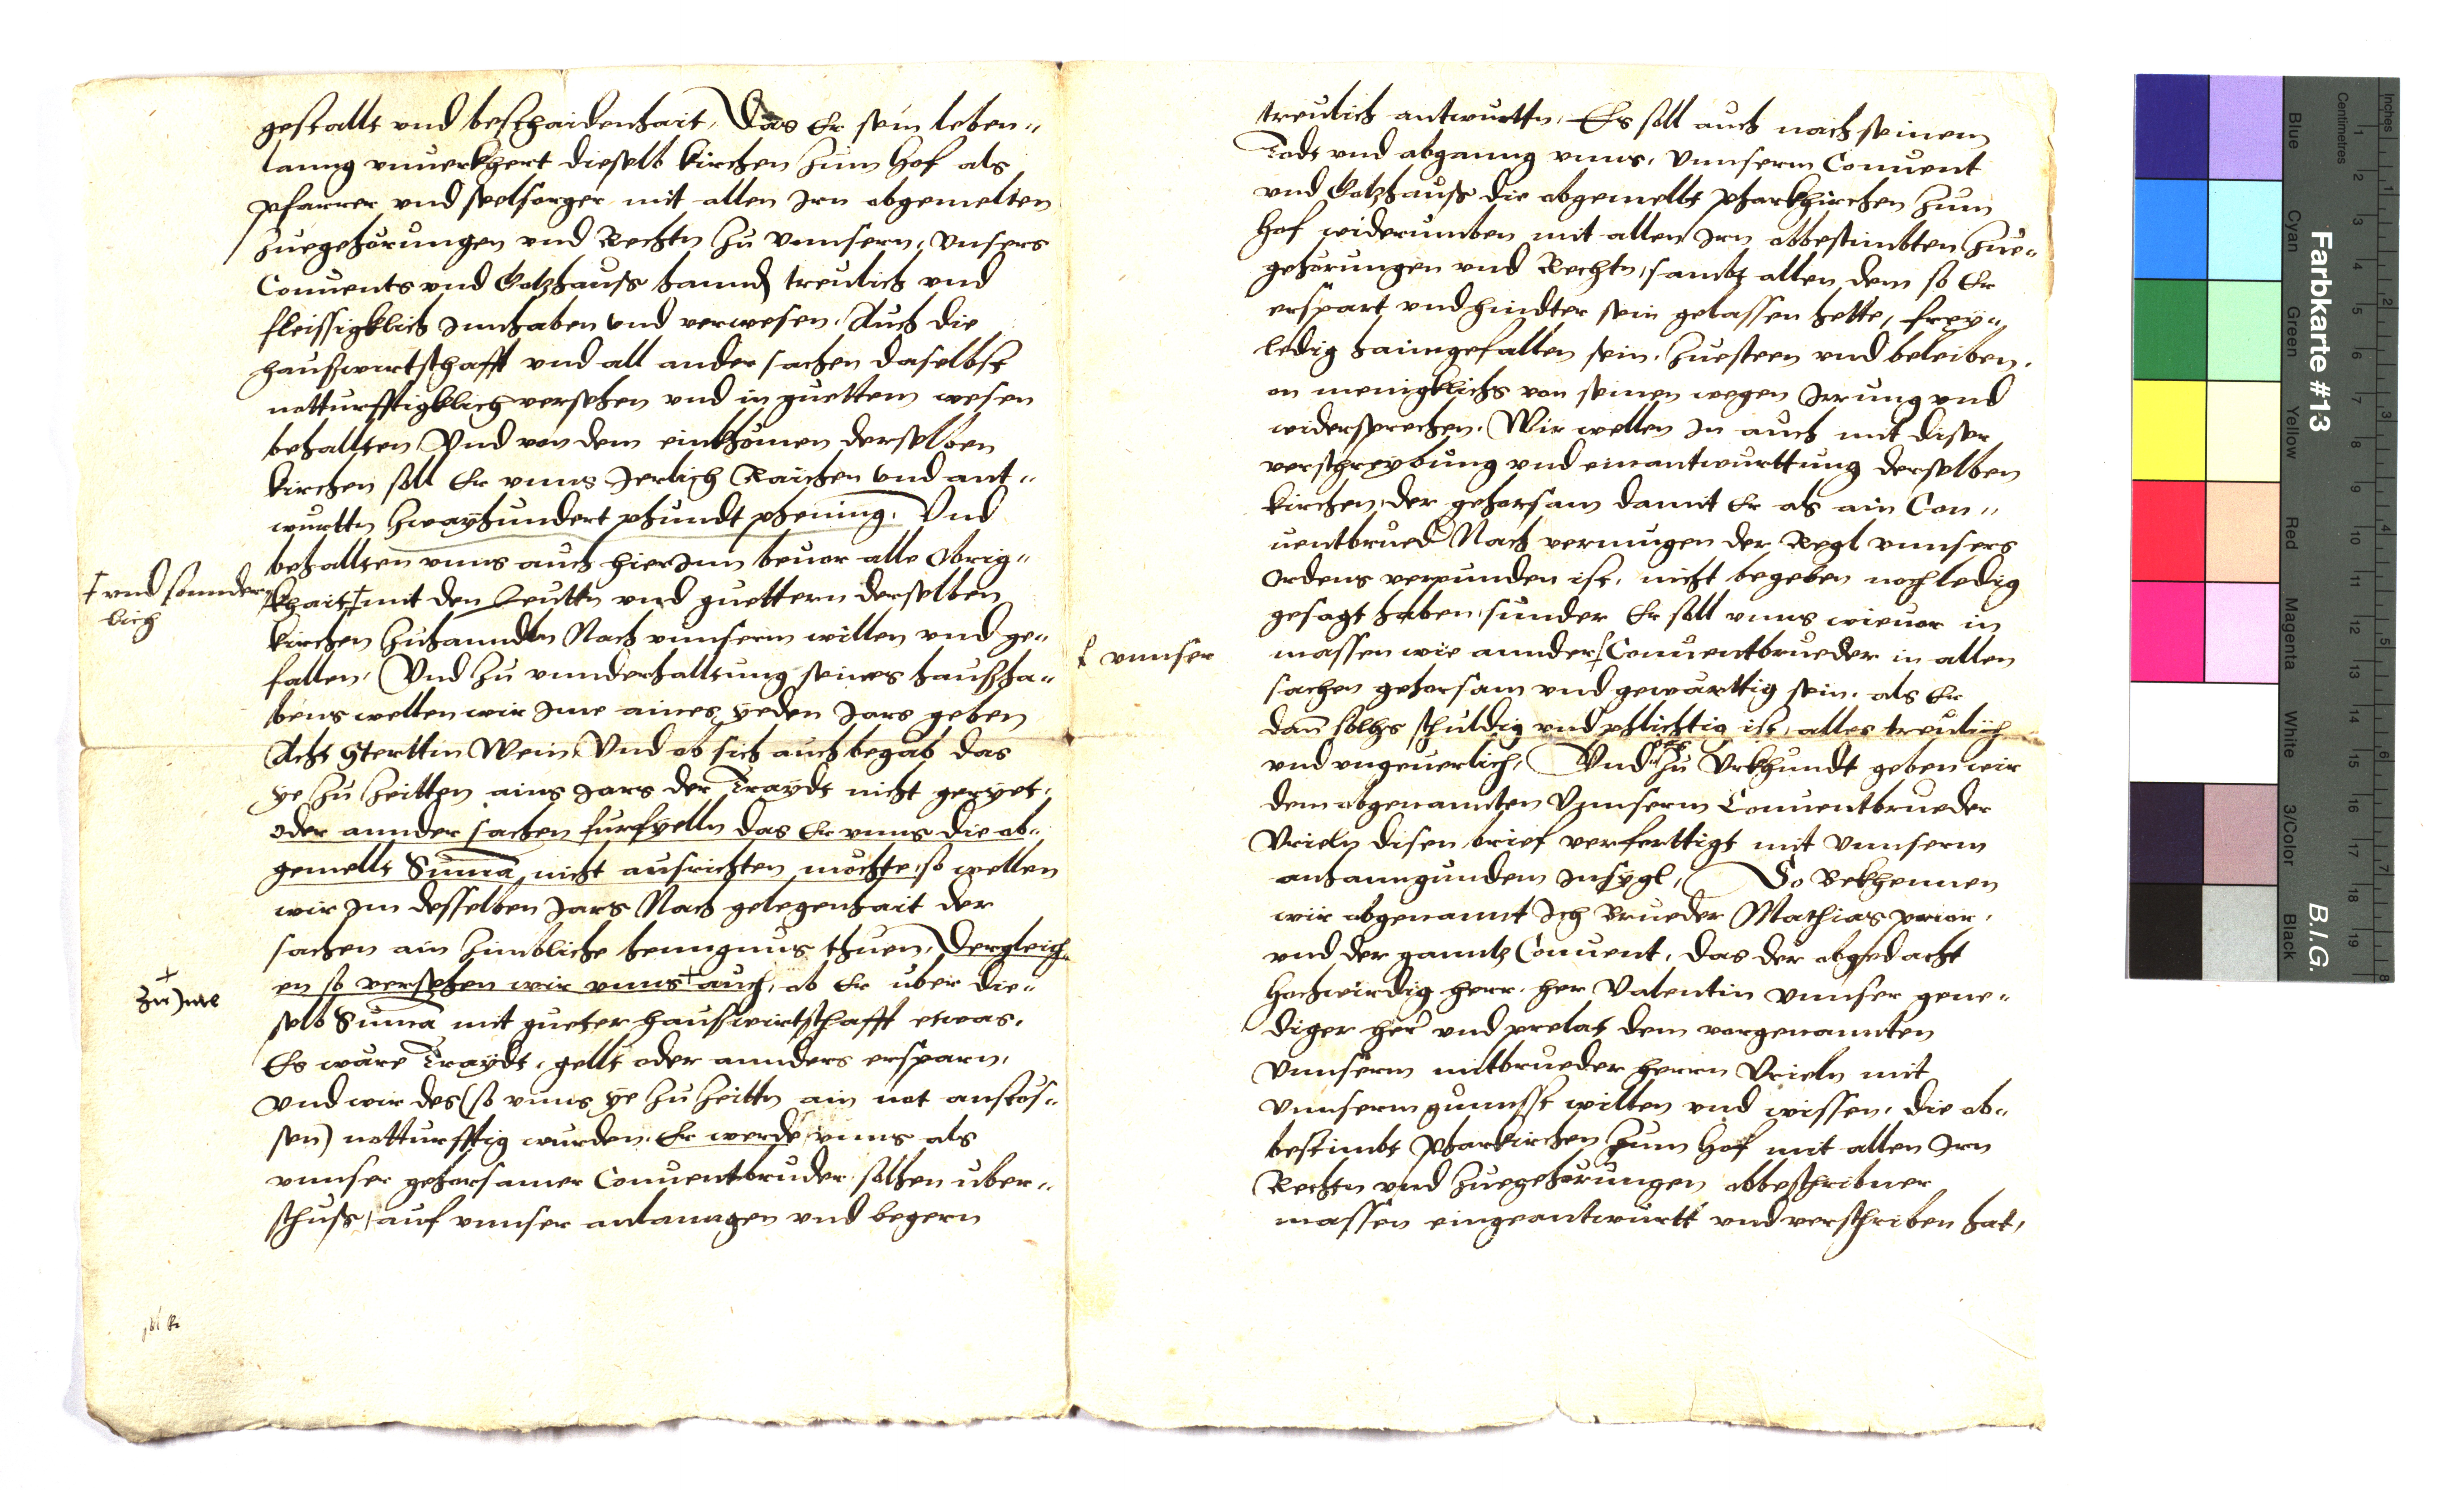 gestallt vnd beschaidenhait, Das Er sein leben„
lanng vnuerkhert dieselb kirchen zum Hof als
pfarrer vnd seelsorger mit allen Irn abgemelten
zuegehörungen vnd Rechtn zu vnnsern, vnsers
Conuents vnd Gotzhauss hannd treulich vnd
fleissigklich Innhaben vnd verwesen. Auch die
hauswirtschafft vnd all ander sachen daselbst
notturfftigklich versehen vnd in guettem wesen
behallten Vnd von dem einkhömen derselben
kirchen soll Er vnns Jerlich Raichen vnd ant„
wurttn zwayhundert phundt phening. Vnd
behallten vnns auch hierInn beuor alle Obrig„
khait ┼ mit den Leuttn vnd guettern derselben
┼ vnd sonnder„
lich
kirchen zuhanndln Nach vnnserm willen vnd ge„
fallen, Vnd zu vnnderhalltung seines haußha„
bens wellen wir Ime aines yeden Jars geben
Acht Sterttin Wein, Vnd ob sich auch begab das
ye zu zeitten ains Jars der Traydt nicht geryet,
oder annder sachen furfyelln das Er vnns die ob„
gemellt Suma nicht ausrichten möchte, so wellen
wir Im desselben Jars Nach gelegenhait der
sachen ain zimbliche henngnus thuen, Dergleich„
en so versehen wir vnns + auch, ob Er uber die„
+
zu Ime
selb Suma mit gueter hauswirtschafft etwas,
Es wäre Traydt, gellt oder annders ersparn,
vnd wir des (so vnns ye zu zeittn ain not anstos„
sen) notturfftig wurden. Er werde vnns als
vnnser gehorsamer Conuentbruder solhen uber„
schuss, auf vnnser anlanngen vnd begern
treulich antwurttn, Es soll auch nach seinem
Todt vnd abganng vnns, Vnnserm Conuent
vnd Gotzhauss die abgemellt pharkhirchen zum
Hof widerumben mit allen Irn obbestimbten zue„
gehörungen vnd Rechtn, sambt allen dem so Er
erspart vnd hindter sein gelassen hette, frey„
ledig haimgefallen sein, zuesteen vnd beleiben,
on menigklichs von seinen wegen Irrung vnd
widersprechen. Wir wellen In auch mit diser
verschreybung vnd einantwurttung derselben
kirchen, der gehorsam damit Er als ain Con„
uentbrued Nach vermugen der Regl vnnsers
Ordens verpunden ist, nicht begeben noch ledig
gesagt haben, sunder Er soll vnns wieuor in
massen wie annder ┼ Conuentbrueder in allen
┼ vnnser
sachen gehorsam vnd gewärttig sein, als Er
dan solhs schuldig vnd phlichtig ist, alles treulich
vnd vngeuerlich, Vnd zu Vrkhundt geben wir
dem abgenannten Vnnserm Conuentbrueder
Vrieln disen brief verferttigt mit Vnnserm
anhanngundem Insygl, So Bekhennen
wir abgenannt Ich Brueder Mathias prior,
vnd der ganntz Conuent, das der abgedacht
Hochwirdig herr, her Valentin Vnnser gene„
diger her vnd prelat dem vorgenannten
Vnnserm mitbrueder herrn Vrieln mit
Vnnserm gunnst willen vnd wissen, die ob„
bestimbt Pharkirchen zum Hof mit allen Irn
Rechtn vnd zuegehörungen obbeschribner
massen eingeantwurtt vnd verschriben hat,
Farbkarte #13
B.I.G.
Inches
Centimetres
1 2 3 4 5 6 7 8 9 10 11 12 13 14 15 16 17 18 19
1 2 3 4 5 6 7 8
Blue
Cyan
Green
Yellow
Red
Magenta
White
3/Color
Black